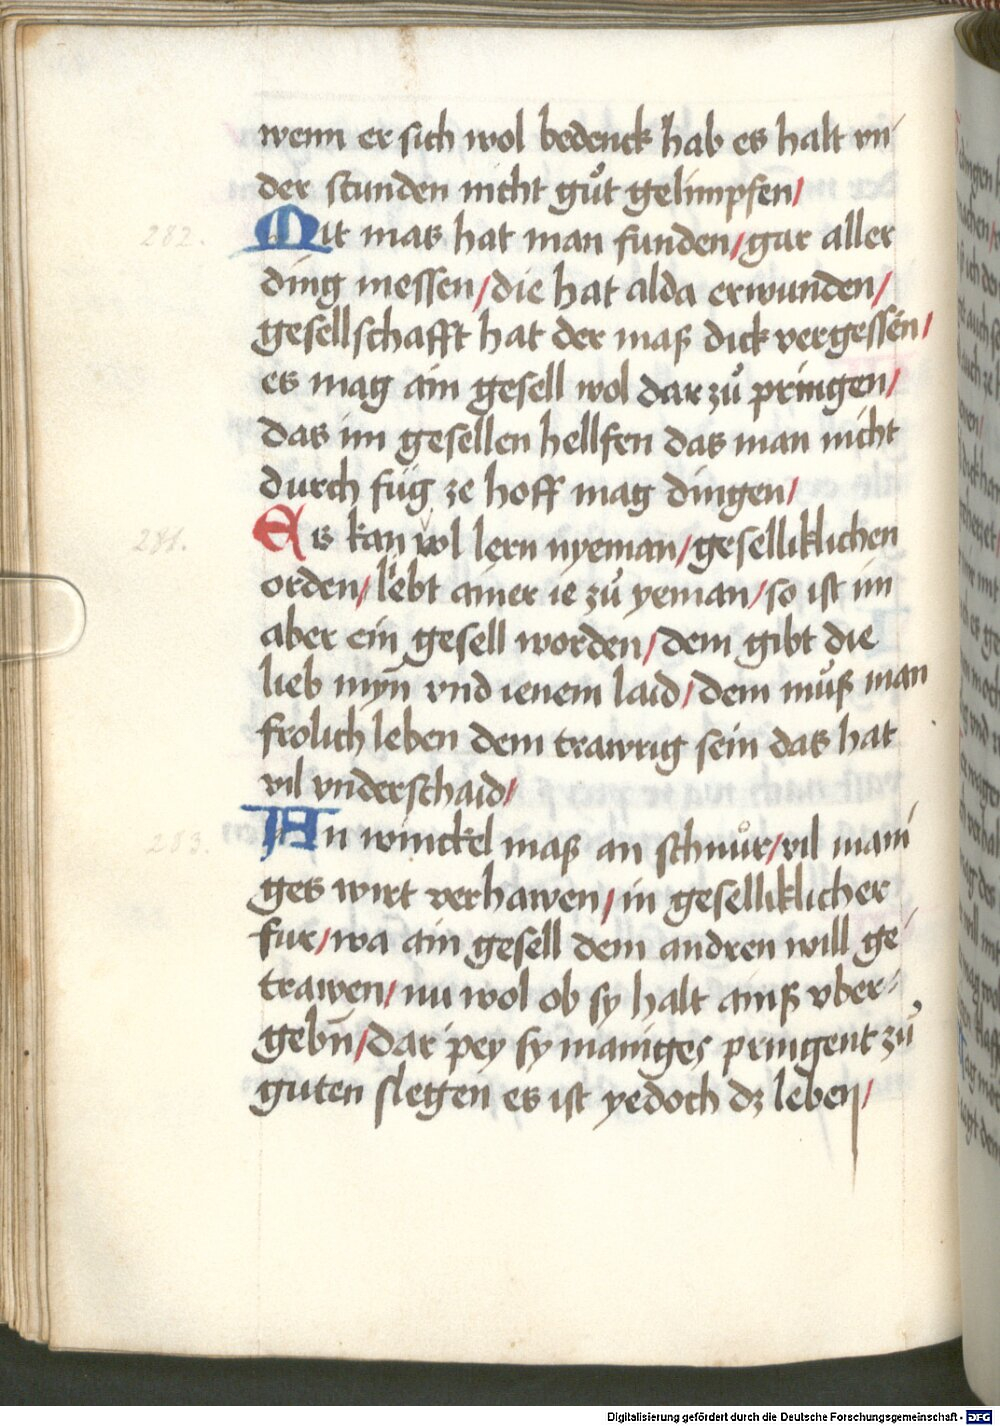 wenn er sich wol bedenck hab es halt vn
der stunden nicht gůt gelimpfen/
282.
Mit mas hat man funden/gar aller
ding messen/die hat alda erwunden/
gesellschafft hat der maß dick vergessen/
es mag ain gesell wol dar zů pringen/
das im gesellen hellfen das man nicht
durch füg ze hoff mag dingen/
281.
Es kan wol lern nyeman/geselliklichen
orden/lebt ainer ie zů yeman/so ist im
aber ein gesell worden/dem gibt die
lieb myn̄ vnd ienem laid/dem můß man
frolich leben dem trawrig sein das hat
vil vnderschaid/
283.
An winckel maß an schnůr/vil mani
ges wirt verhawen/in geselliklicher
fur/wa ain gesell dem andren will ge
trawen/nu wol ob sy halt ainß vber-
gebn̄/dar pey sy maniges pringent zů
guten slegen es ist yedoch dz leben/
Digitalisierung gefördert durch die Deutsche Forschungsgemeinschaft - DFG